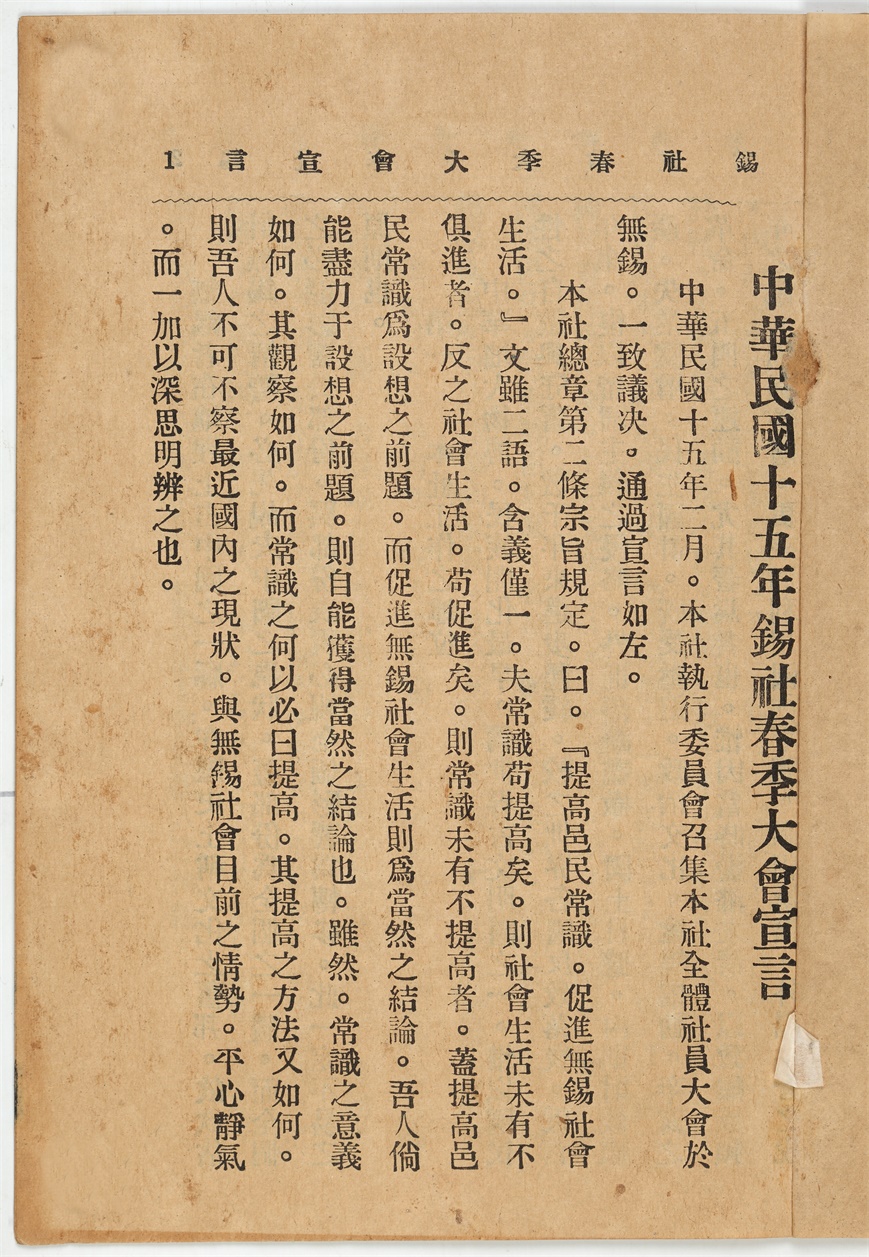 錫社春季大會宣言 1
中華民國十五年錫社春季大會宣言
中華民國十五年二月。本社執行委員會召集本社全體社員大會於
無錫。一致議決。通過宣言如左。
本社總章第二條宗旨規定。曰。『提高邑民常識。促進無錫社會
生活。』文雖二語。含義僅一。夫常識苟提高矣。則社會生活未有不
俱進者。反之社會生活。苟促進矣。則常識未有不提高者。蓋提高邑
民常識爲設想之前題。而促進無錫社會生活則爲當然之結論。吾人倘
能盡力于設想之前題。則自能獲得當然之結論也。雖然。常識之意義
如何。其觀察如何。而常識之何以必曰提高。其提高之方法又如何。
則吾人不可不察最近國內之現狀。與無錫社會目前之情勢。平心靜氣
。而一加以深思明辨之也。